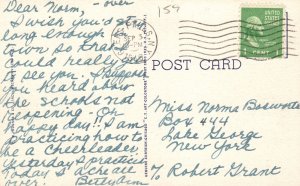 Dear Norm, - over
I wish you'd st
long enough
town so that
could really
to see you. I suppose
you heard about
the schools not
reopening - Oh
happy day! I am
practicing how to
be a cheerleader
yesterday I practiced
Today I ache all
over. Betty Ann
159
1 CENT 1
POST CARD
Miss Norma
Box 444
Lake George
New York
% Robert Grant